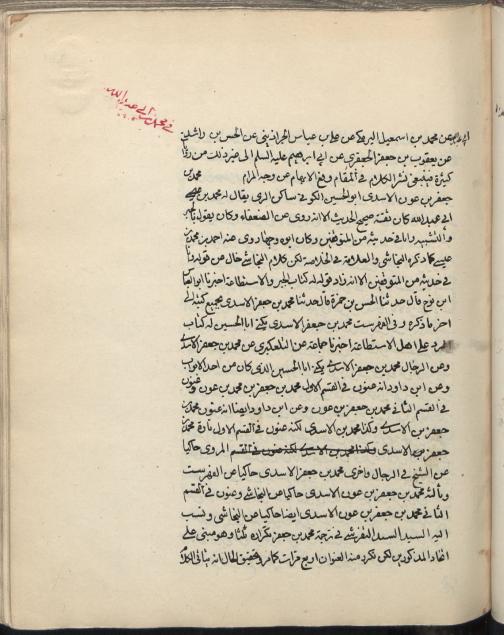 في محمد بن ابي عبد الله
ابراهيم عن محمد بن اسمعيل البرمكي عن علي بن عباس الجراذيني عن الحسن بن راشد
عن يعقوب بن جعفر الجعفري عن ابي ابرهيم عليه السلم الى غير ذلك من روايات
كثيرة فينبغي نشر الكلام في المقام ورفع الابهام عن وجه المرام محمد بن
جعفر بن عون الاسدى ابو الحسين الكوفي ساكن الرى يقال له محمد بن
ابي عبد الله كان ثقة صحيح الحديث الا انه روى عن الضعفاء وكان يقول بالجبر
والتشبيه وانا في حديثه من المتوقفين وكان ابوه وجها روى عنه احمد بن محمد بن
عيسى كما ذكره النجاشي والعلامة في الخلاصة لكن كلام النجاشي خال عن قوله وانا
في حديثه من المتوقفين الا انه زاد قوله له كتاب الجبر والاستطاعة اخبرنا ابو العباس
ابن نوح قال حدثنا الحسن بن حمزة قال حدثنا محمد بن جعفر الاسدى بجميع كتبه الى
اخر ما ذكره وفي الفهرست محمد بن جعفر الاسدى يكنى ابا الحسين له كتاب
الرد على اهل الاستطاعة اخبرنا جماعة عن التلعكبرى عن محمد بن جعفر الاسدى
وعن الرجال محمد بن جعفر الاسدى يكنى ابا الحسين الذى كان من احد الابواب
وعن ابن داود انه عنون في القسم الاول محمد بن جعفر بن محمد بن عون وعنون
في القسم الثاني محمد بن جعفر بن عون وعن ابن داود ايضا انه عنون محمد بن
جعفر بن الاسدى وكذا محمد بن الاسدى لكنه عنون في القسم الاول تارة محمد بن
جعفر بن الاسدى وكذا محمد بن الاسدى لكنه عنون في القسم المروى حاكيا
عن الشيخ في الرجال واخرى محمد بن جعفر الاسدى حاكيا عن الفهرست
وثالثة محمد بن جعفر بن عون الاسدى حاكيا عن النجاشي وعنون في القسم
الثاني محمد بن جعفر بن عون الاسدى ايضا حاكيا عن النجاشي ونسب
اليه السيد السند التفرشي في ترجمة محمد بن جعفر تكراره ثلثا وهو مبني على
اتحاد المذكورين لكن تكرر منه العنوان اربع مرات كما مر وتحقيق الحال انه يتاتى الكلام